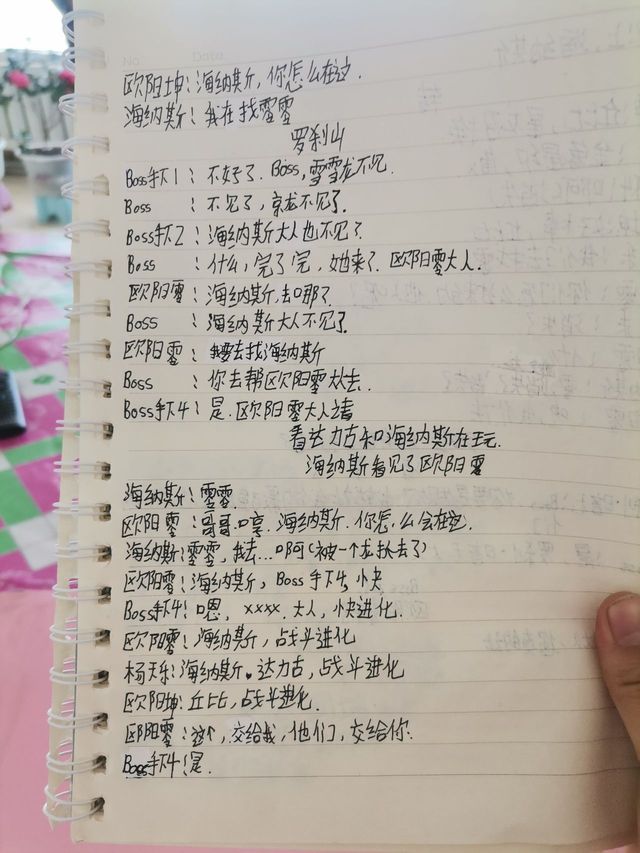 No Date
欧阳坤:海纳斯,你怎么在这.
海纳斯:我在找零零
罗刹山
Boss手下1:不好了.Boss,雪雪龙不见
Boss :不见了,京龙不见了.
Boss手下2:海纳斯大人也不见了
Boss :什么,完了完,她来了.欧阳零大人.
欧阳零:海纳斯,去哪了.
Boss :海纳斯大人不见了.
欧阳零:我要去找海纳斯
Boss :你去帮欧阳零大人去.
Boss手下4:是.欧阳零大人请
看达力古和海纳斯在玩.
海纳斯看见了欧阳零
海纳斯:零零
欧阳零:哥哥.哼.海纳斯.你怎么会在这.
海纳斯:零零,我去…啊(被一个龙扶去了)
欧阳零:海纳斯,Boss手下4,快
Boss手下4:嗯,xxxx.大人,快进化.
欧阳零:海纳斯,战斗进化
杨天乐:海纳斯.达力古,战斗进化
欧阳坤:丘比,战斗进化.
欧阳零:这个,交给我,他们,交给你.
Boss手下4:是.